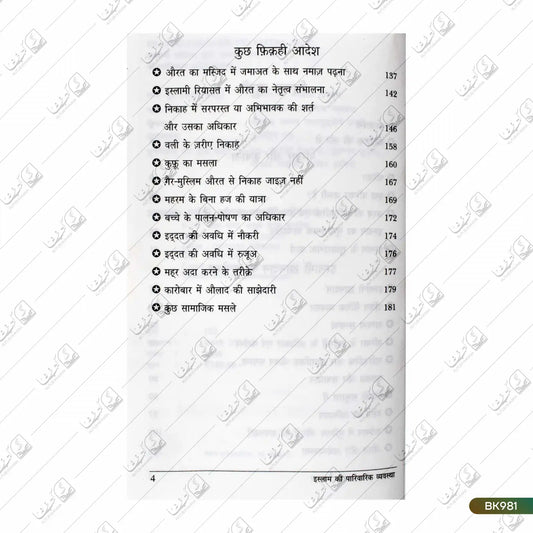 कुछ फ़िक़ही आदेश
✪ औरत का मस्जिद में जमाअत के साथ नमाज़ पढ़ना 137
✪ इस्लामी रियासत में औरत का नेतृत्व संभालना 142
✪ निकाह में सरपरस्त या अभिभावक की शर्त
और उसका अधिकार 146
✪ वली के ज़रीए निकाह 158
✪ कुफ़ू का मसला 160
✪ ग़ैर-मुस्लिम औरत से निकाह जाइज़ नहीं 167
✪ महरम के बिना हज की यात्रा 169
✪ बच्चे के पालन-पोषण का अधिकार 172
✪ इद्दत की अवधि में नौकरी 174
✪ इद्दत की अवधि में रुजूअ 176
✪ महर अदा करने के तरीक़े 177
✪ कारोबार में औलाद की साझेदारी 179
✪ कुछ सामाजिक मसले 181
4 इस्लाम की पारिवारिक व्यवस्था
BK981